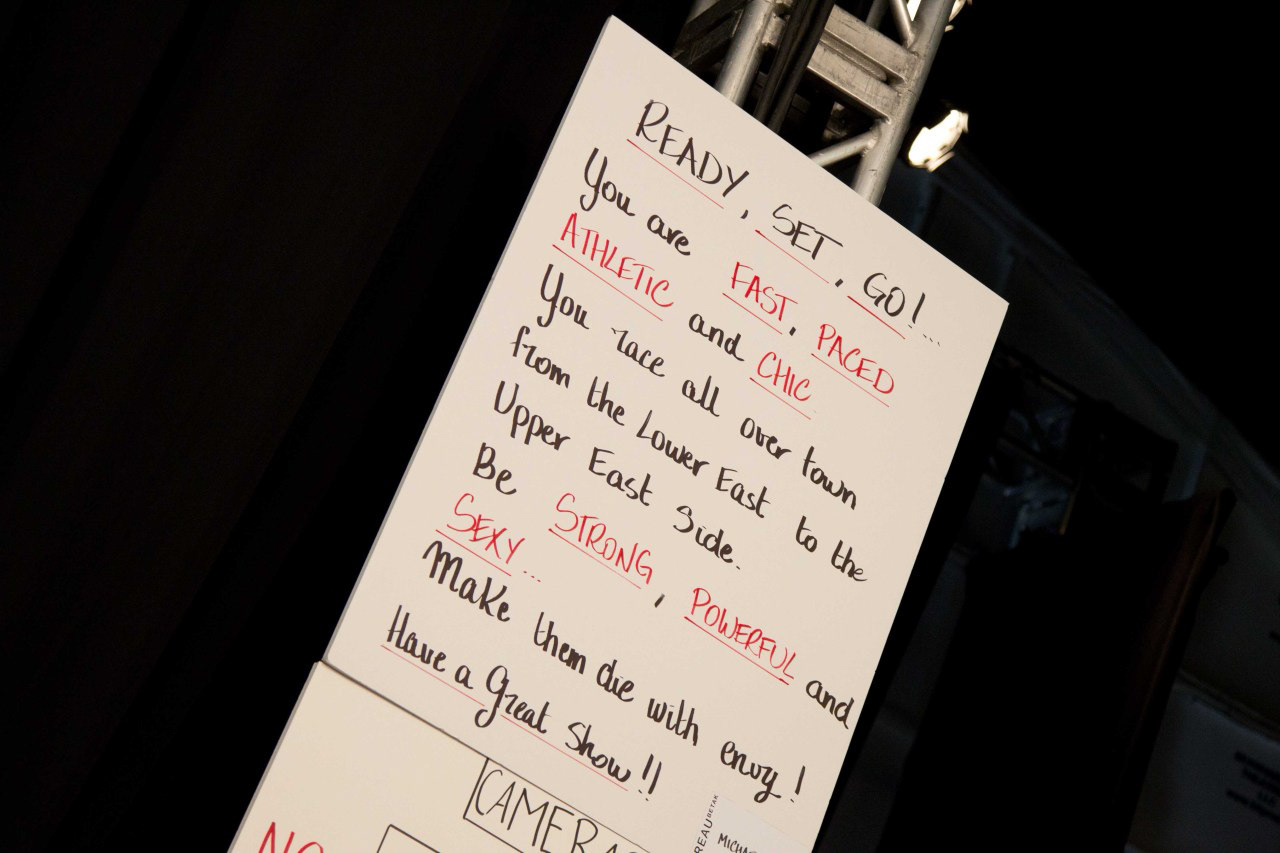 READY, SET, GO!...
You are FAST, PACED
ATHLETIC and CHIC
You race all over town
from the Lower East to the
Upper East side.
Be STRONG, POWERFUL and
SEXY...
Make them die with envy!
Have a Great Show!!
CAMERAS
NO
REAU BETAK
MICHA